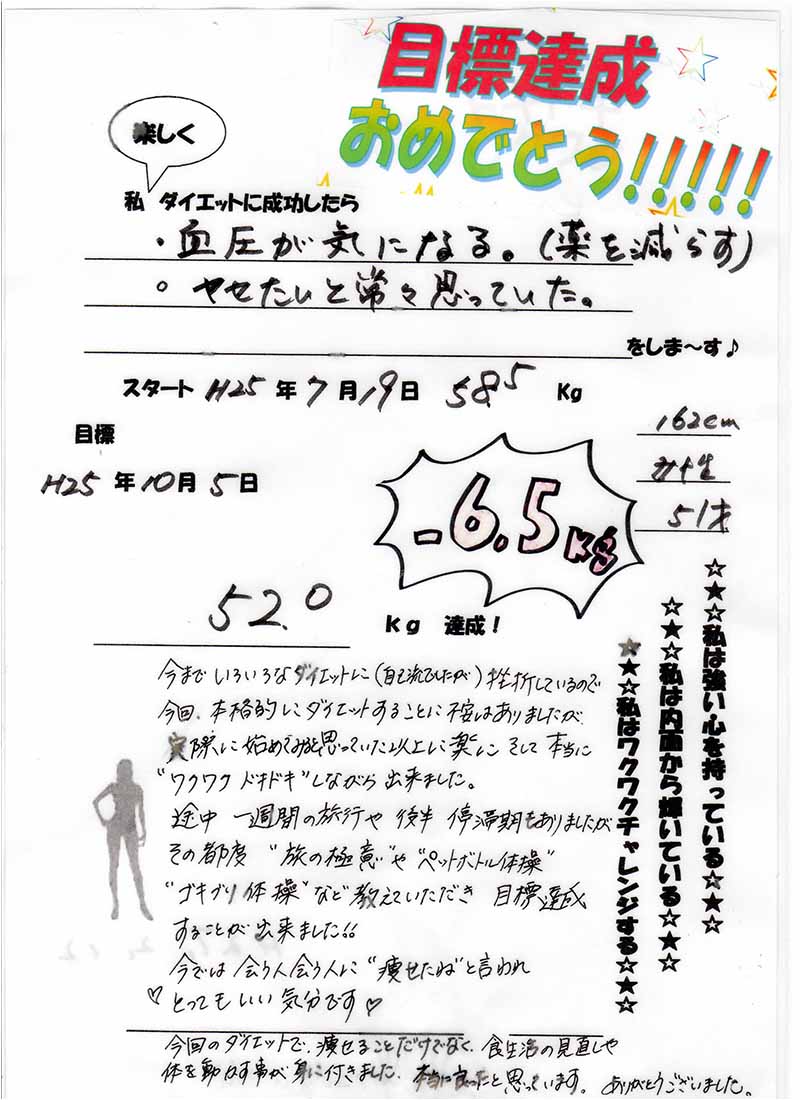 目標達成
おめでとう!!!!!
楽しく
私 ダイエットに成功したら
・血圧が気になる。(薬を減らす)
○ ヤセたいと常々思っていた。
をしま〜す♪
スタート H25年7月19日 58.5 Kg
162cm
女性
51才
目標
H25年10月5日
-6.5KG
52.0
kg 達成！
☆★☆私は強い心を持っている☆★☆
☆★☆私は内面から輝いている☆★☆
★★☆私はワクワクチャレンジする☆★☆
今まで いろいろなダイエットに(自己流でしたが) 挫折しているので
今回、本格的にダイエットすることに不安はありましたが
実際に始めてみると思っていた以上に楽に そして 本当に
"ワクワク ドキドキ"しながら 出来ました。
途中 一週間の旅行や 後半 停滞期もありましたが
その都度 "旅の極意"や"ペットボトル体操"
"ゴキブリ体操"など 教えていただき 目標達成
することが出来ました!!
今では 会う人会う人に "痩せたね"と言われ
♡とってもいい気分です♡
今回のダイエットで、痩せることだけでなく、食生活の見直しや
体を動かす事が身に付きました。本当に良かったと思っています。ありがとうございました。